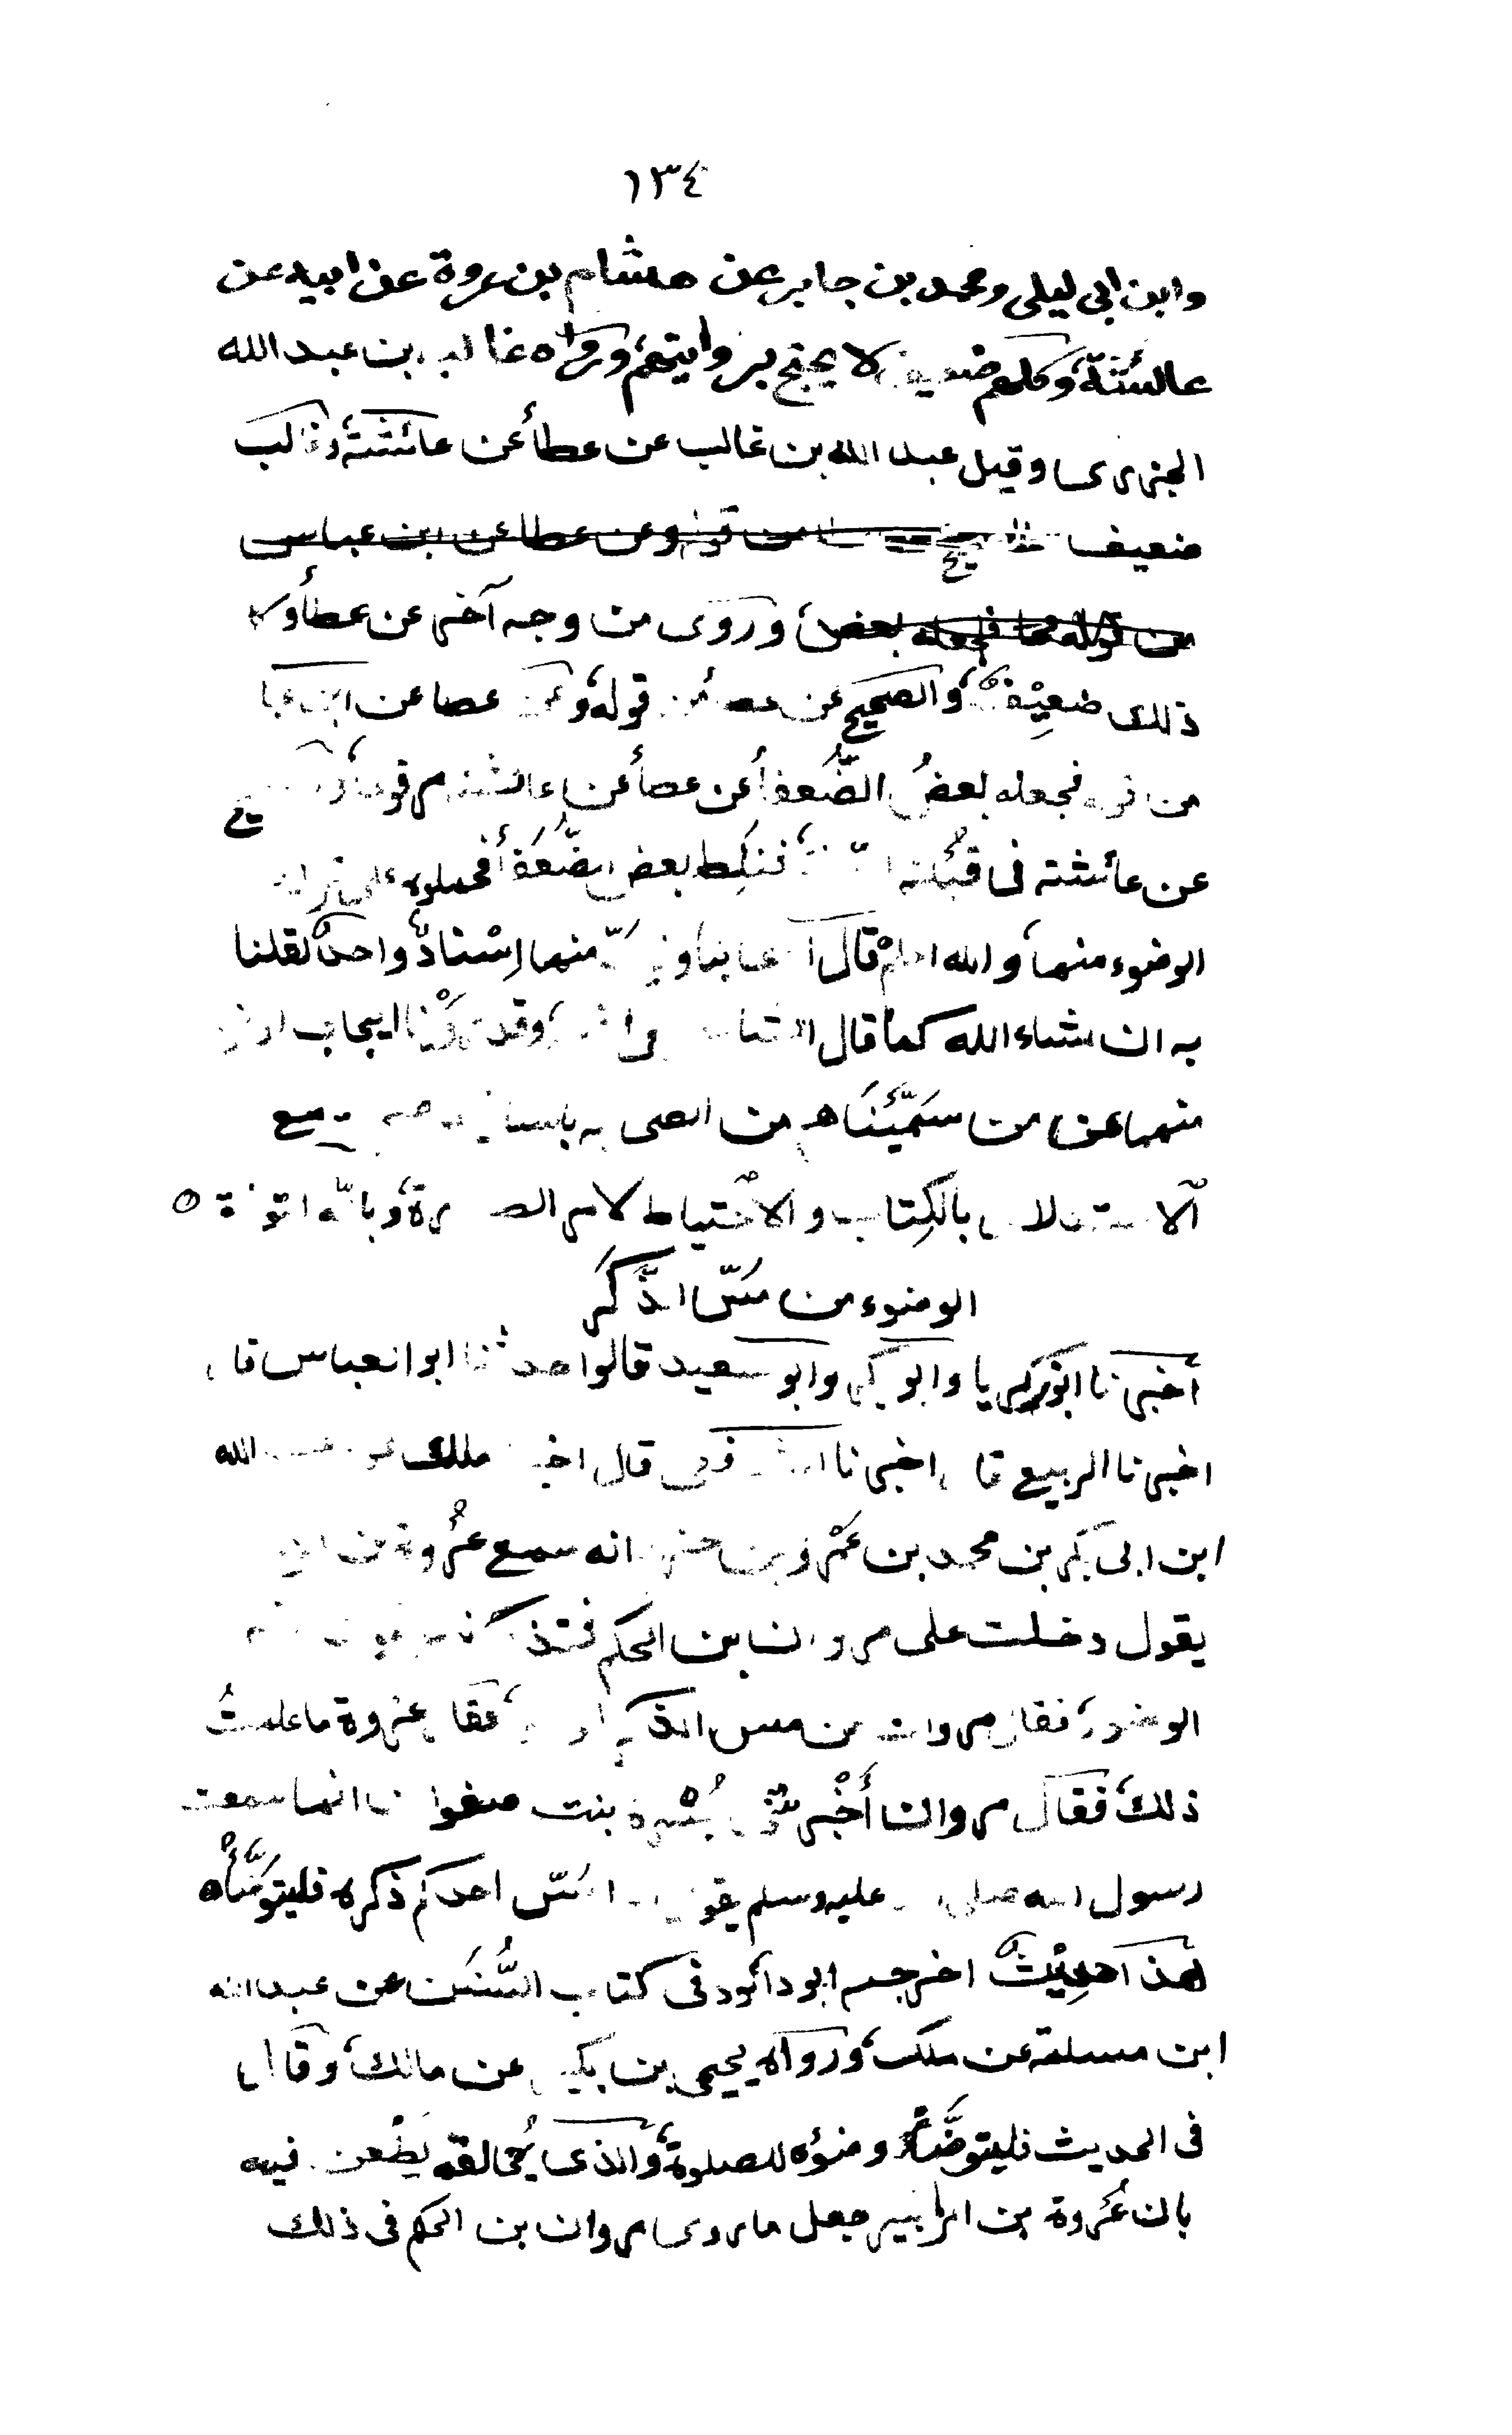 ١٣٤
وابن ابى ليلى ومحمد بن جابر عن هشام بن عروة عن ابيه عن
عائشة، وكلهم ضعيف لا يحتج بروايتهم، ورواه غالب بن عبد الله
الجزرى وقيل عبد الله بن غالب عن عطأ عن عائشة، وغالب
ضعيف من قوله وعن عطا عن ابن عباس
من قوله فجعله بعض، وروى من وجه آخر عن عطأ وكل
ذلك ضعِيْف، والصحيح عن عطأ من قوله، وعن عطا عن ابن عبا
من قوله فجعله بعضُ الضُّعفأ عن عطأ عن عائشة مرفوعا،
عن عائشته فى قُبْلته فغلط بعض الضُّعَفأ فحملوه على ترك
الوضوء منها، والله اعلم قال منها اِسْنادٌ واحدٌ لقلنا
به ان شاء الله كما قال وقد ايجاب
منهما عن من سَمَّيْنَاهم من الصحابه
الاستدلال بالكِتاب والاحْتياط لامر الطهارة، وبالله التوفيق ٥
الوضوء من مَسّ الذَّكَر
أخبرنا ابو زكريا وابو بكر وابو سعيد قالوا حدثنا ابو العباس قال
اخبرنا الربيع قال اخبرنا الشافعى قال اخبرنا ملك عن عبد الله
ابن ابى بكر بن محمد بن عَمْرو بن حزم انه سمع عُرْوة بن الزبير
يقول دخلت على مروان بن الحكم فتذاكرنا ما يكون منه
الوضوء، فقال مروان من مس الذكر الوضوء، فقال عروة ما علمتُ
ذلك، فقال مروان أَخْبرتْنى بُسْرة بنت صفوان انها سمعت
رسول الله صلى الله عليه وسلم يقول اذا مَسّ احدكم ذكره فليتوَضَّأْه
هذا حدِيْثٌ اخرجه ابو داؤد فى كتاب السُّنَن عن عبد الله
ابن مسلمة عن ملك، ورواه يحيى بن بكير عن مالك، وقال
فى الحديث فليتوضَّأ وضوءه للصلوة، والذى يُخالفه يطْعن فيه
بان عُروة بن الزبير جعل ما روى مروان بن الحكم فى ذلك